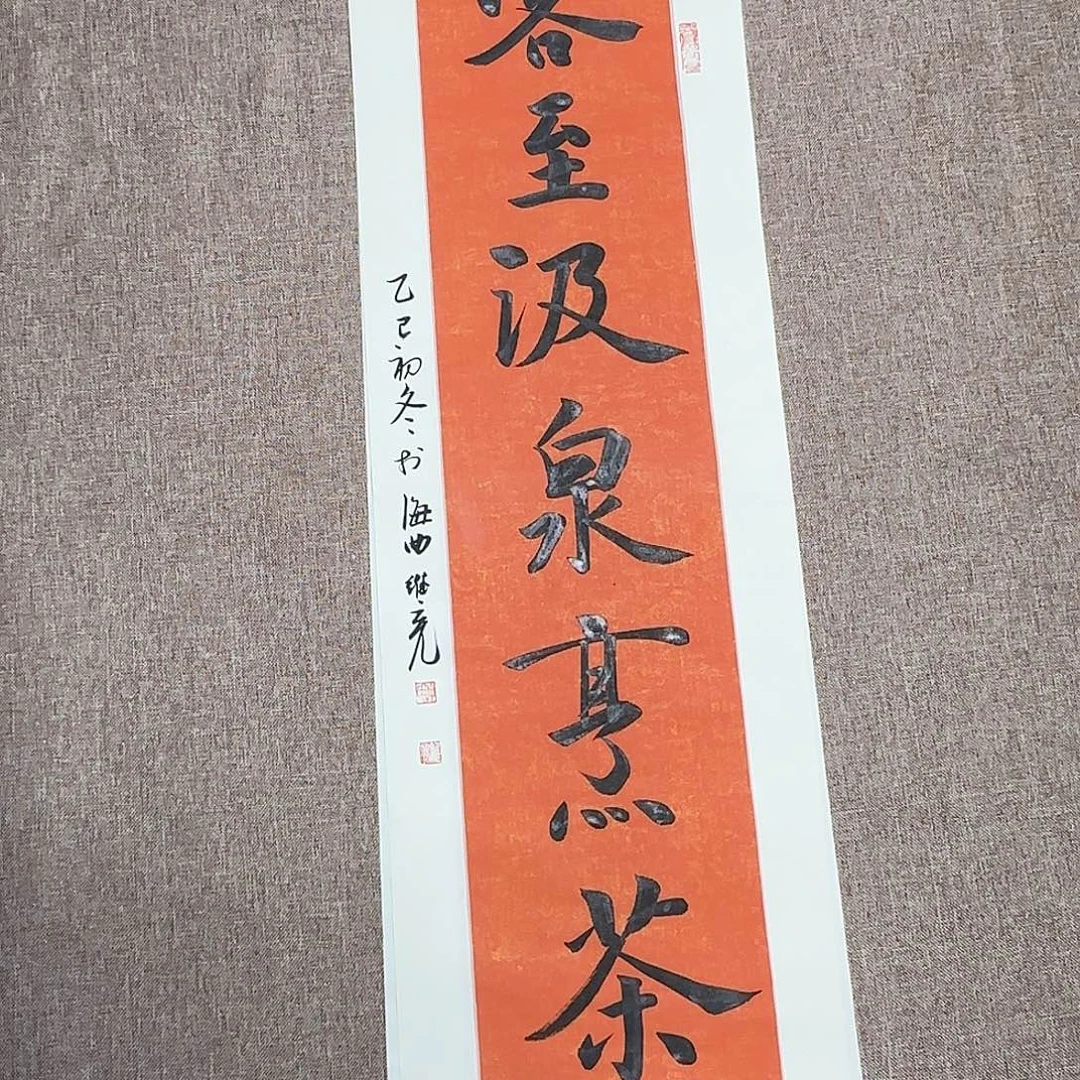 客至汲泉烹茶
乙巳初冬书海曲维亮